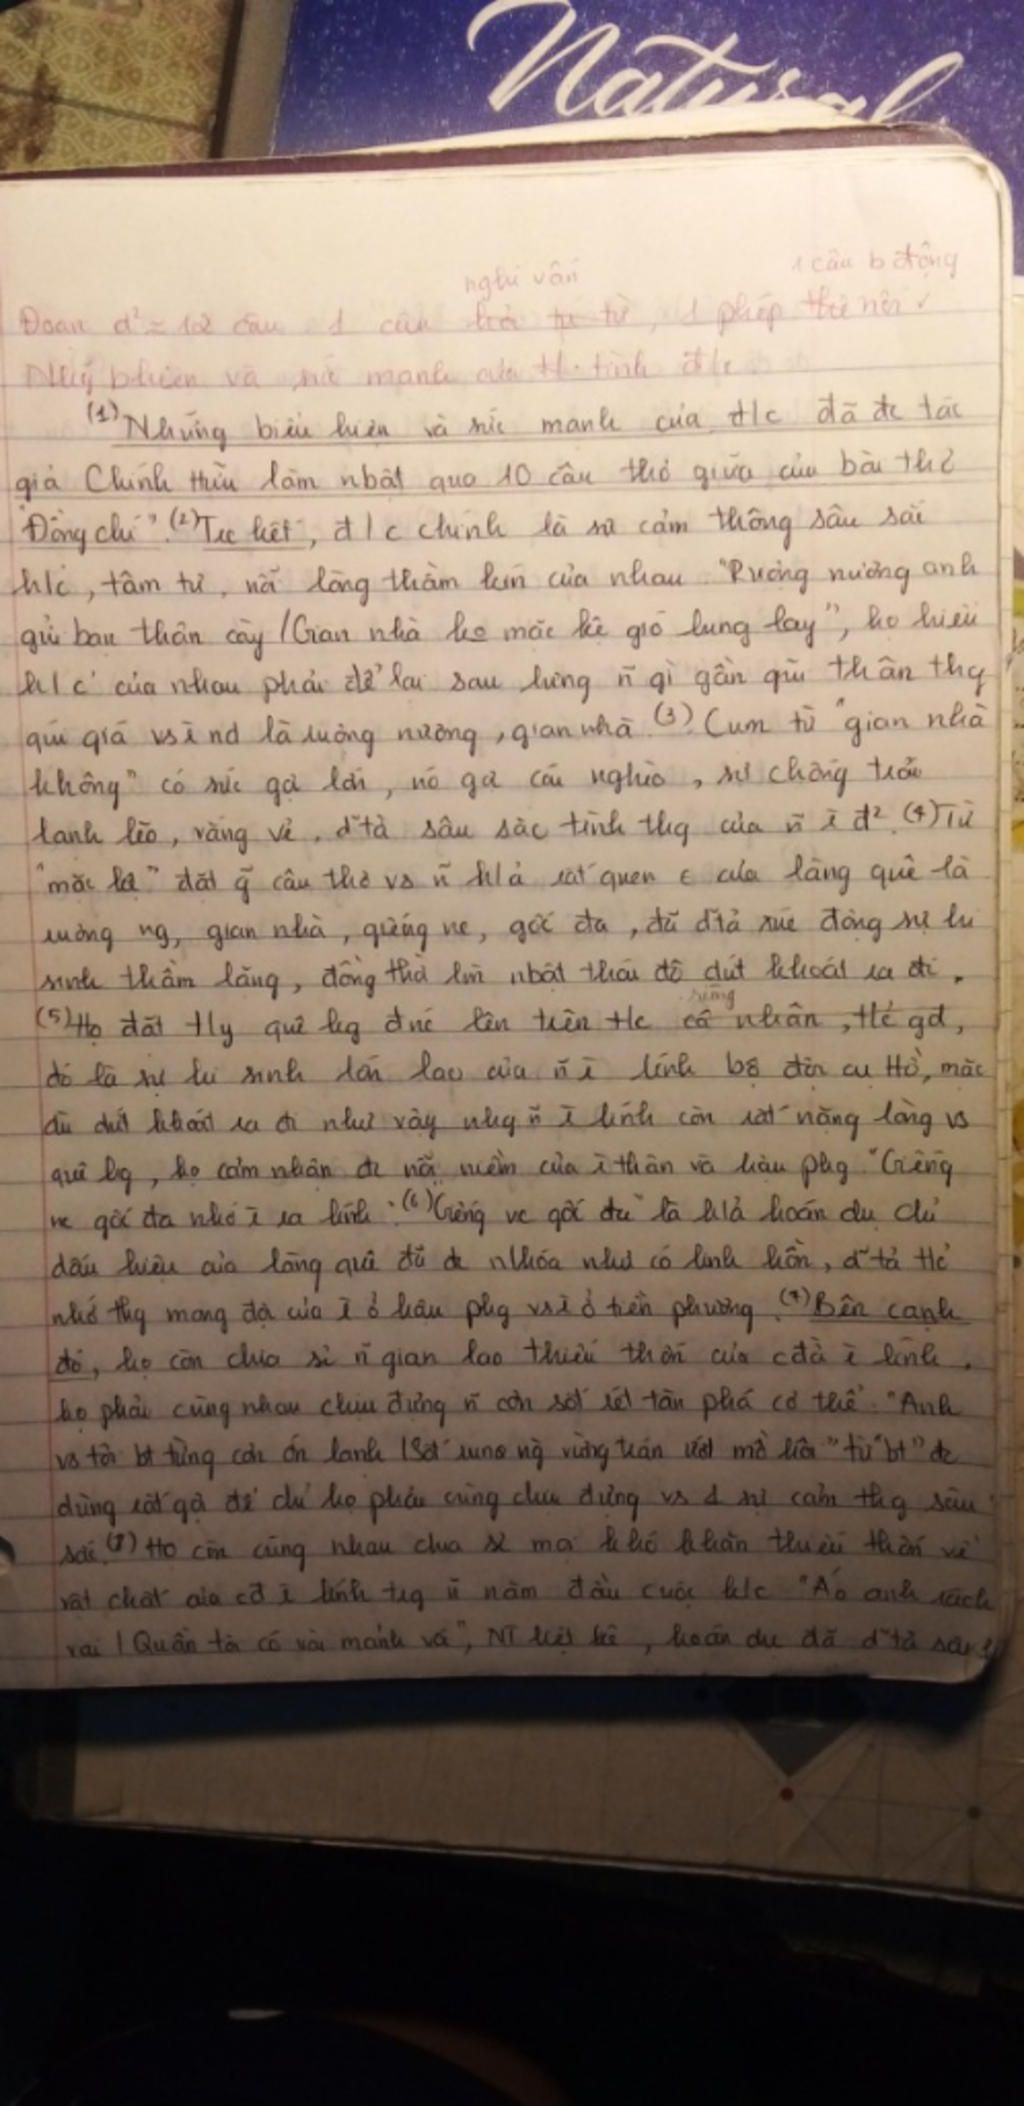 Natural
nghi vấn 1 câu b động
Đoạn d² = 12 câu 1 câu tu từ, 1 phép thế nối ✓
biện và sức mạnh của t. tình đ/c
(1) Những biểu hiện và sức mạnh của đ/c đã đc tác
giả Chính Hữu làm nbật qua 10 câu thơ giữa của bài thơ
"Đồng chí". (2) Trc hết, đ/c chính là sự cảm thông sâu sắc
h/c, tâm tư, nỗi lòng thầm kín của nhau "Ruộng nương anh
gửi bạn thân cày / Gian nhà ko mặc kệ gió lung lay", họ hiểu
h/c của nhau phải để lại sau lưng ~n gì gần gũi thân thg
quí giá vs i nd là ruộng nương, gian nhà. (3) Cụm từ "gian nhà
không" có sức gợi lớn, nó gợi cái nghèo, sự chống trải
lạnh lẽo, vắng vẻ, d~tả sâu sắc tình thg của ~n i đ². (4) Từ
"mặc kệ" đặt g~ câu thơ vs ~n h/ả rất quen € của làng quê là
ruộng ng, gian nhà, giếng nc, gốc đa, đã d~tả xúc động sự hi
sinh thầm lặng, đồng thời làm nbật thái độ dứt khoát ra đi.
(5) Họ đặt t/y quê hg đnc lên trên t/c riêng cá nhân, t/c gđ,
đó là sự hi sinh lớn lao của ~n i lính bộ đội cụ Hồ, mặc
dù dứt khoát ra đi như vậy nhg ~n i lính còn rất nặng lòng vs
quê hg, họ cảm nhận đc nỗi niềm của i thân và hậu phg "Giếng
nc gốc đa nhớ i ra lính". (6) "Giếng nc gốc đa" là h/ả hoán dụ chỉ
dấu hiệu của làng quê đã đc nhóa như có linh hồn, d~tả t/c
nhớ thg mong đợi của i ở hậu phg vs i ở tiền phương. (7) Bên cạnh
đó, họ còn chia sẻ ~n gian lao thiếu thốn của cđời i lính.
họ phải cùng nhau chịu đựng ~n cơn sốt rét tàn phá cơ thể. "Anh
vs tôi bt từng cơn ớn lạnh / Sốt run ng vừng trán ướt mồ hôi" từ "bt" đc
dùng rất gợi để chỉ họ phải cùng chịu đựng vs 1 sự cảm thg sâu
sắc. (8) Họ còn cùng nhau chia sẻ mọi khó khăn thiếu thốn về
vật chất của cđ i lính trg ~n năm đầu cuộc k/c "Áo anh rách
vai / Quần tôi có vài mảnh vá", NT liệt kê, hoán dụ đã d~tả sâu